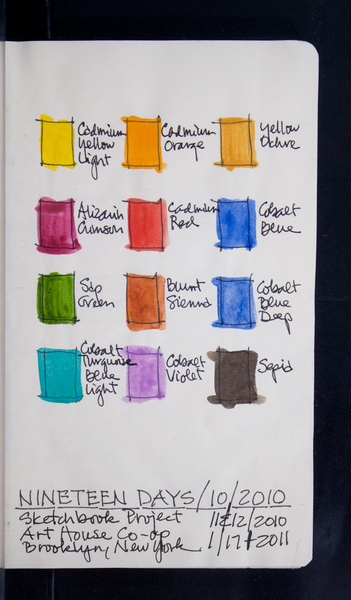 Cadmium
Yellow
Light
Cadmium
Orange
Yellow
Ochre
Alizarin
Crimson
Cadmium
Red
Cobalt
Blue
Sap
Green
Burnt
Sienna
Cobalt
Blue
Deep
Cobalt
Turquoise
Blue
Light
Cobalt
Violet
Sepia
NINETEEN DAYS/10/2010
Sketchbook Project
Art House Co-op 1/17/2011
Brooklyn, New York